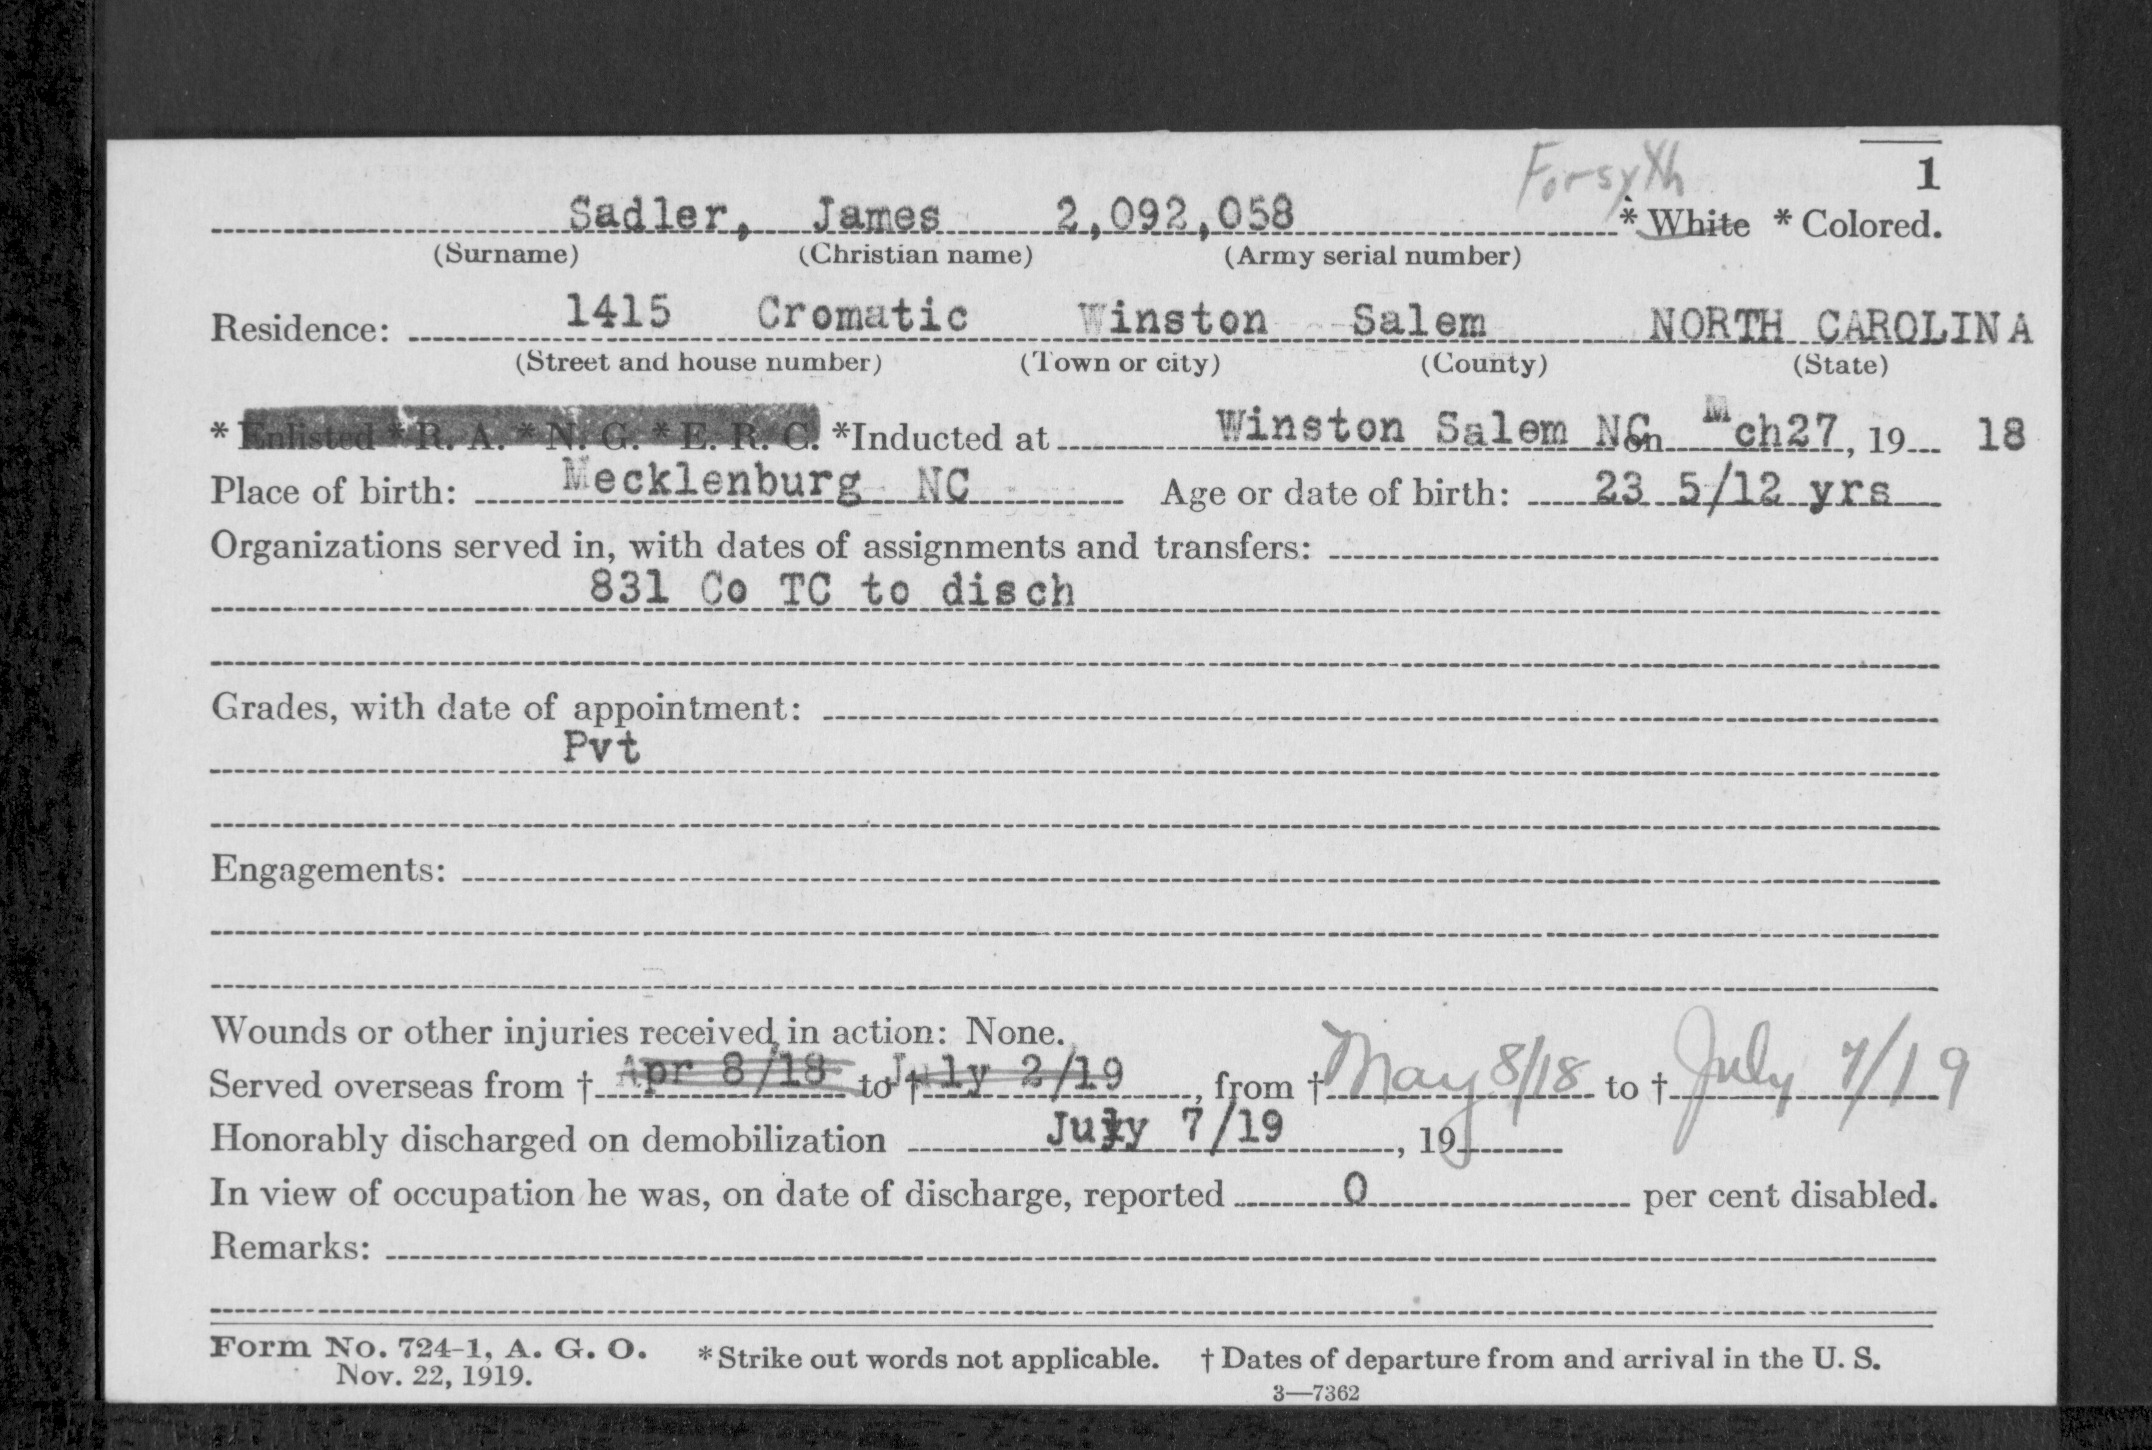 Forsyth
1
Sadler, James 2,092,058 * White * Colored.
(Surname) (Christian name) (Army serial number)
Residence: 1415 Cromatic Winston Salem NORTH CAROLINA
(Street and house number) (Town or city) (County) (State)
* Enlisted * R. A. * N. G. * E. R. C. *Inducted at Winston Salem NC on Mch27, 19 18
Place of birth: Mecklenburg NC Age or date of birth: 23 5/12 yrs
Organizations served in, with dates of assignments and transfers:
831 Co TC to disch
Grades, with date of appointment:
Pvt
Engagements:
Wounds or other injuries received in action: None.
Served overseas from † Apr 8/18 to † July 2/19, from † May 8/18 to † July 7/19
Honorably discharged on demobilization July 7/19, 19
In view of occupation he was, on date of discharge, reported 0 per cent disabled.
Remarks:
Form No. 724-1, A. G. O. * Strike out words not applicable. † Dates of departure from and arrival in the U. S.
Nov. 22, 1919.
3—7362